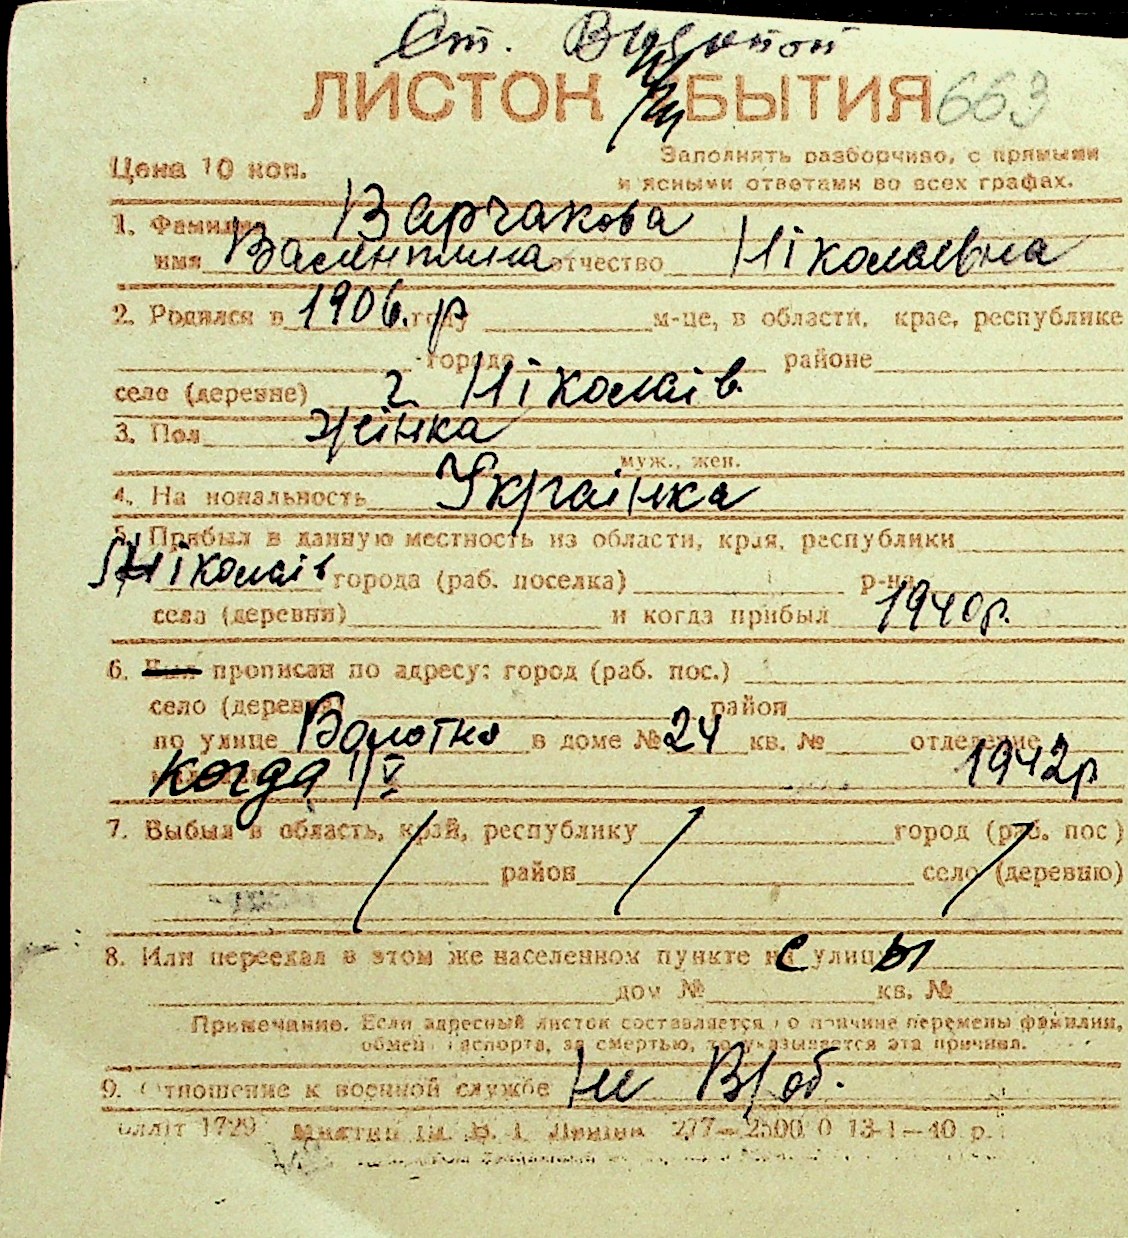 Ст.
ЛИСТОК УБЫТИЯ 663
Цена 10 коп.
Заполнять разборчиво, с прямыми
и ясными ответами во всех графах.
1. Фамилия Варчакова
имя Валентина отчество Ніколаевна
2. Родился в 1906.р году м-це, в области, крае, республике
города районе
село (деревне) г. Ніколаїв.
3. Пол жінка
муж., жен.
4. Национальность Українка
5. Прибыл в данную местность из области, края, республики
Ніколаїв города (раб. поселка) р-на
села (деревни) и когда прибыл 1940р.
6. Был прописан по адресу: город (раб. пос.)
село (деревня) район
по улице в доме № 24 кв. № отделение
когда 1/V 1942р
7. Выбыл в область, край, республику город (раб. пос)
район село (деревню)
8. Или переехал в этом же населенном пункте с улицы
дом № кв. №
Примечание. Если адресный листок составляется по причине перемены фамилии,
обмен паспорта, за смертью, то указывается эта причина.
9. Отношение к военной службе Не В/об.
1729 ім. В. І. Леніна 277—2500 0 13-1—40 р.